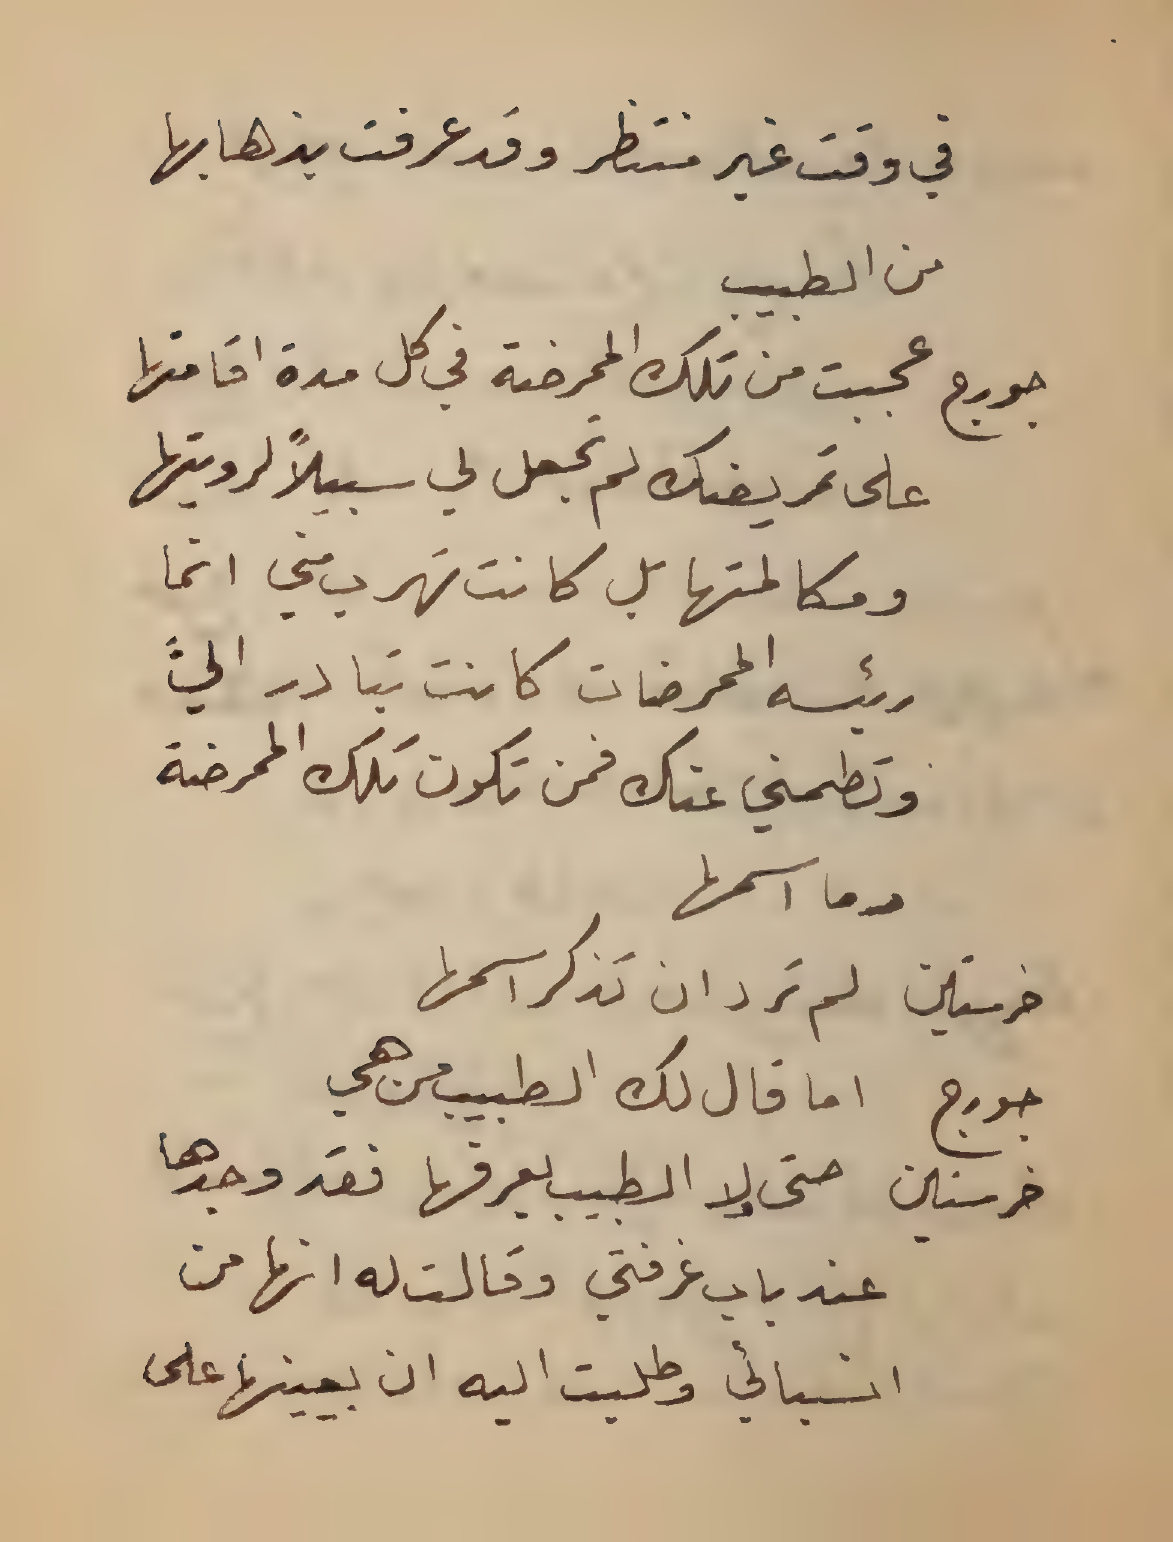 في وقت غير منتظر وقد عرفت بذهابها
من الطبيب
جورج عجبت من تلك الممرضة في كل مدة اقامتها
على تمريضك لم تجعل لي سبيلاً لرويتها
ومكالمتها بل كانت تهرب مني انما
رئيسه الممرضات كانت تبادر اليَّ
وتطمني عنك فمن تكون تلك الممرضة
وما اسمها
خرستين لم ترد ان تذكر اسمها
جورج اما قال لك الطبيب من هي
خرستين حتى ولا الطبيب يعرفها فقد وجدها
عند باب غرفتي وقالت له انها من
انسبائي وطلبت اليه ان يعينها على